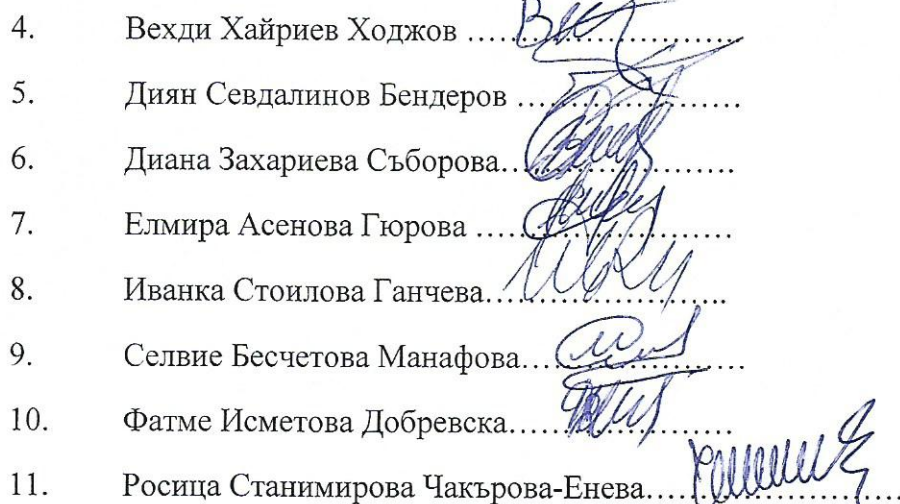 4. Вехди Хайриев Ходжов ....................
5. Диян Севдалинов Бендеров ....................
6. Диана Захариева Съборова....................
7. Елмира Асенова Гюрова ....................
8. Иванка Стоилова Ганчева....................
9. Селвие Бесчетова Манафова....................
10. Фатме Исметова Добревска....................
11. Росица Станимирова Чакърова-Енева....................